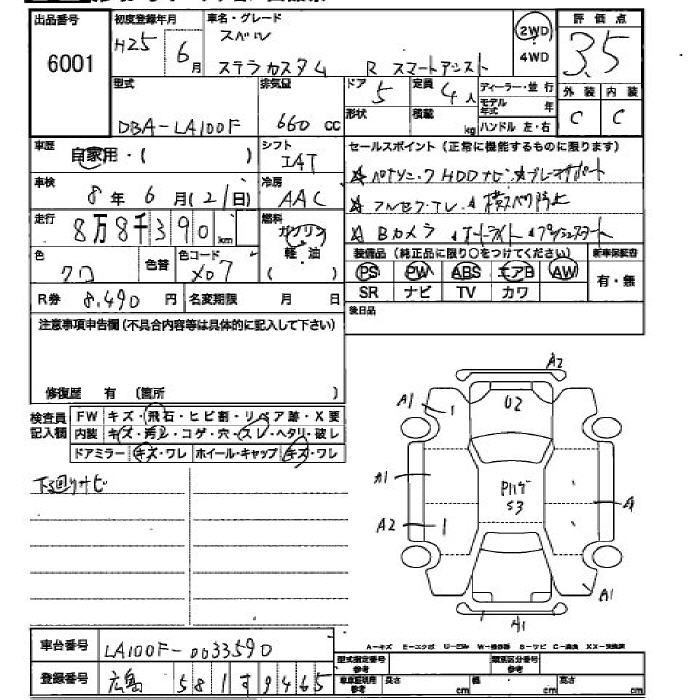 出品番号 初度登録年月 車名・グレード 評価点
6001 H25 6月 スバル 2WD 3.5
ステラカスタム R スマートアシスト 4WD
型式 排気量 ドア 5 定員 4人 ディーラー・並行 外装 内装
モデル年式 年 C C
DBA-LA100F 660 cc 形状 積載 kg ハンドル 左・右
車歴 自家用・( ) シフト IAT セールスポイント (正常に機能するものに限ります)
車検 8年 6月(21日) 冷房 AAC
走行 8万8千390 km 燃料 ガソリン 軽・油 ( )
☆Bカメラ
色 クロ 色替 色コード X07 装備品 (純正品に限り○をつけてください) 新車保証書
PS PW ABS エアB AW 有・無
R券 8,490円 名変期限 月 日 SR ナビ TV カワ
注意事項申告欄(不具合内容等は具体的に記入して下さい) 後日品
修復歴 有 (箇所 )
検査員記入欄 FW キズ・飛石・ヒビ割・リペア跡・X要
内装 キズ・汚レ・コゲ・穴・スレ・ヘタリ・破レ
ドアミラー キズ・ワレ ホイール・キャップ キズ・ワレ
下廻りサビ
A2
A1 1 U2
A1
S3
A2 1
A1
A1
A-キズ E-エクボ
車台番号 LA100F-0033590
登録番号 広島 581 す 9465
型式指定番号 参考 類別区分番号 参考
車庫証明用 参考 長さ cm 幅 cm 高さ cm